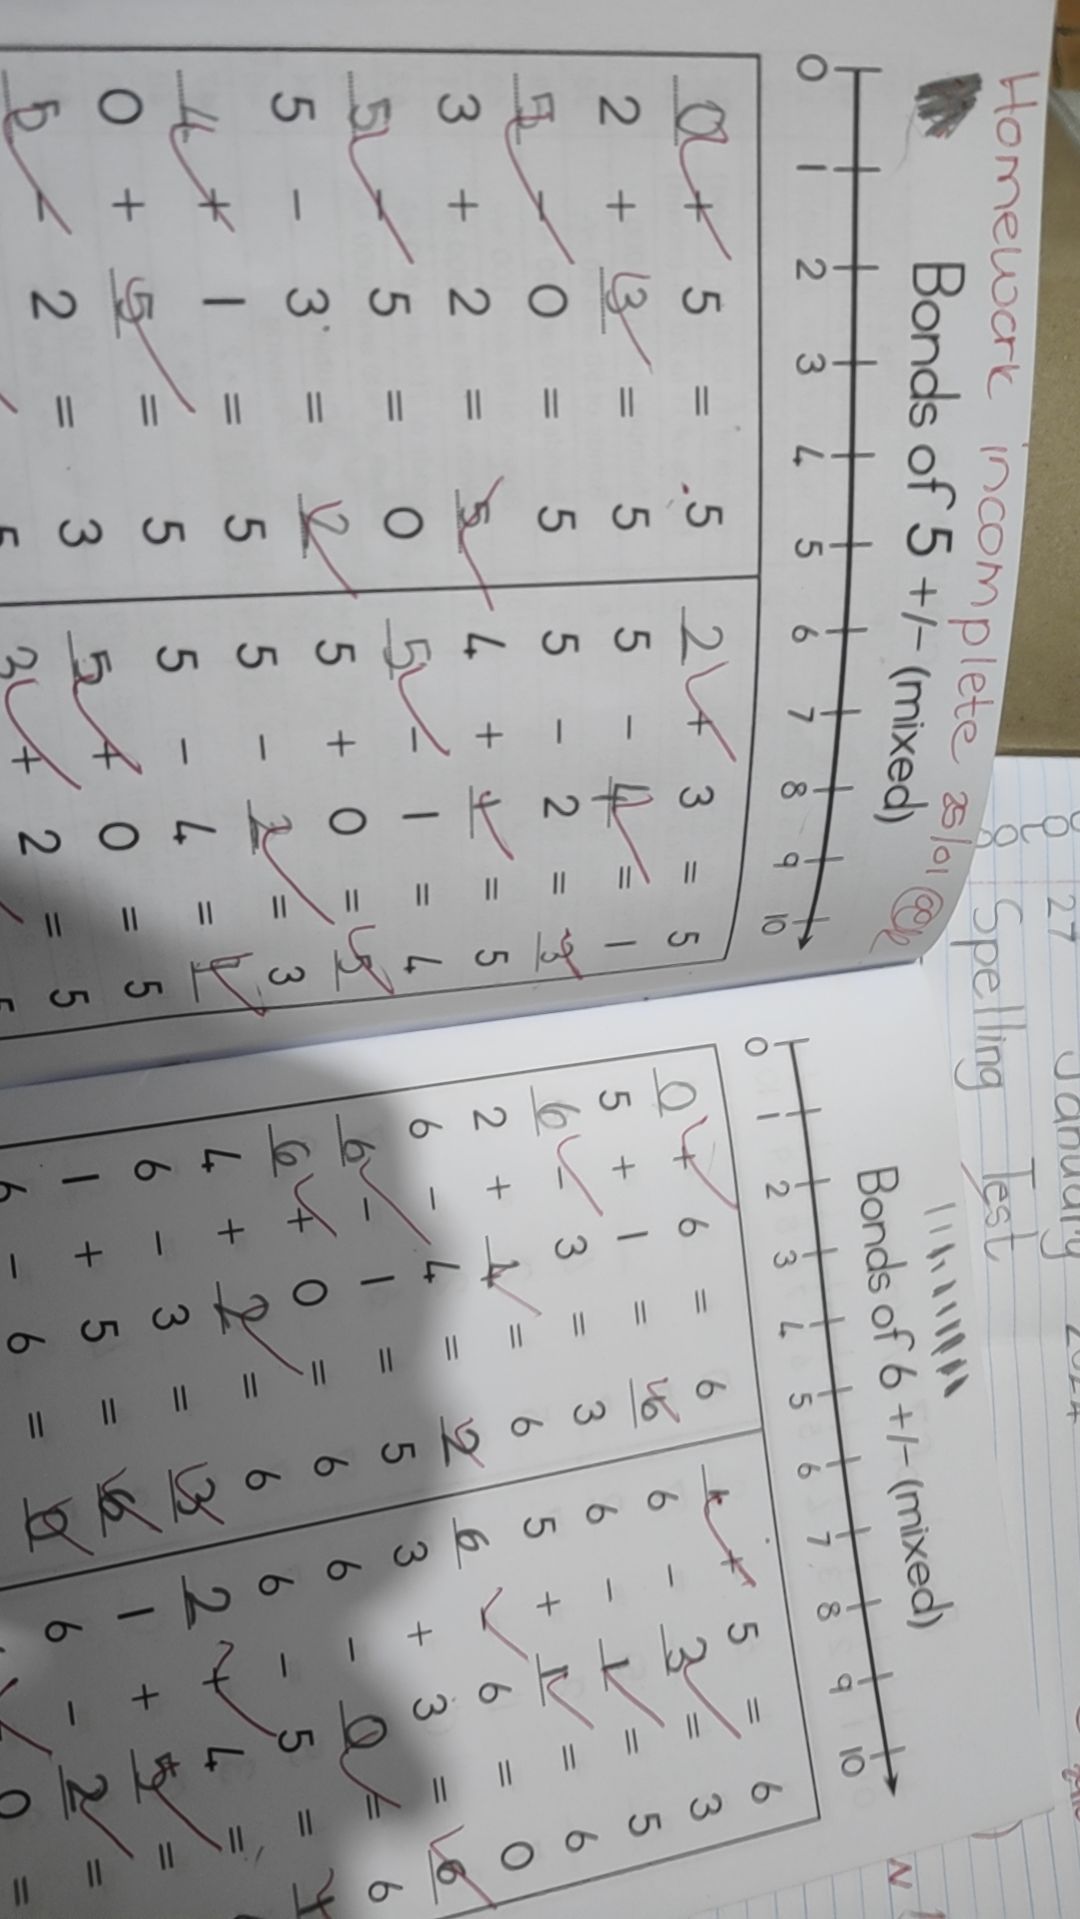 Homework incomplete 25/01
Bonds of 5 +/- (mixed)
0 1 2 3 4 5 6 7 8 9 10
0 + 5 = 5
2 + 3 = 5
5 - 0 = 5
3 + 2 = 5
5 - 5 = 0
5 - 3 = 2
4 + 1 = 5
0 + 5 = 5
5 - 2 = 3
5
2 + 3 = 5
5 - 4 = 1
5 - 2 = 3
4 + 1 = 5
5 - 1 = 4
5 + 0 = 5
5 - 2 = 3
5 - 4 = 1
5 + 0 = 5
3 + 2 = 5
5
27 January 2024
Spelling Test
Bonds of 6 +/- (mixed)
0 1 2 3 4 5 6 7 8 9 10
0 + 6 = 6
5 + 1 = 6
6 - 3 = 3
2 + 4 = 6
6 - 4 = 2
6 - 1 = 5
6 + 0 = 6
4 + 2 = 6
6 - 3 = 3
1 + 5 = 6
6 - 6 = 0
1 + 5 = 6
6 - 3 = 3
6 - 1 = 5
5 + 1 = 6
6 6 = 0
3 + 3 = 6
6 - 0 = 6
6 - 5 = 1
2 + 4 =
1 + 5 =
6 - 2 =
0 =